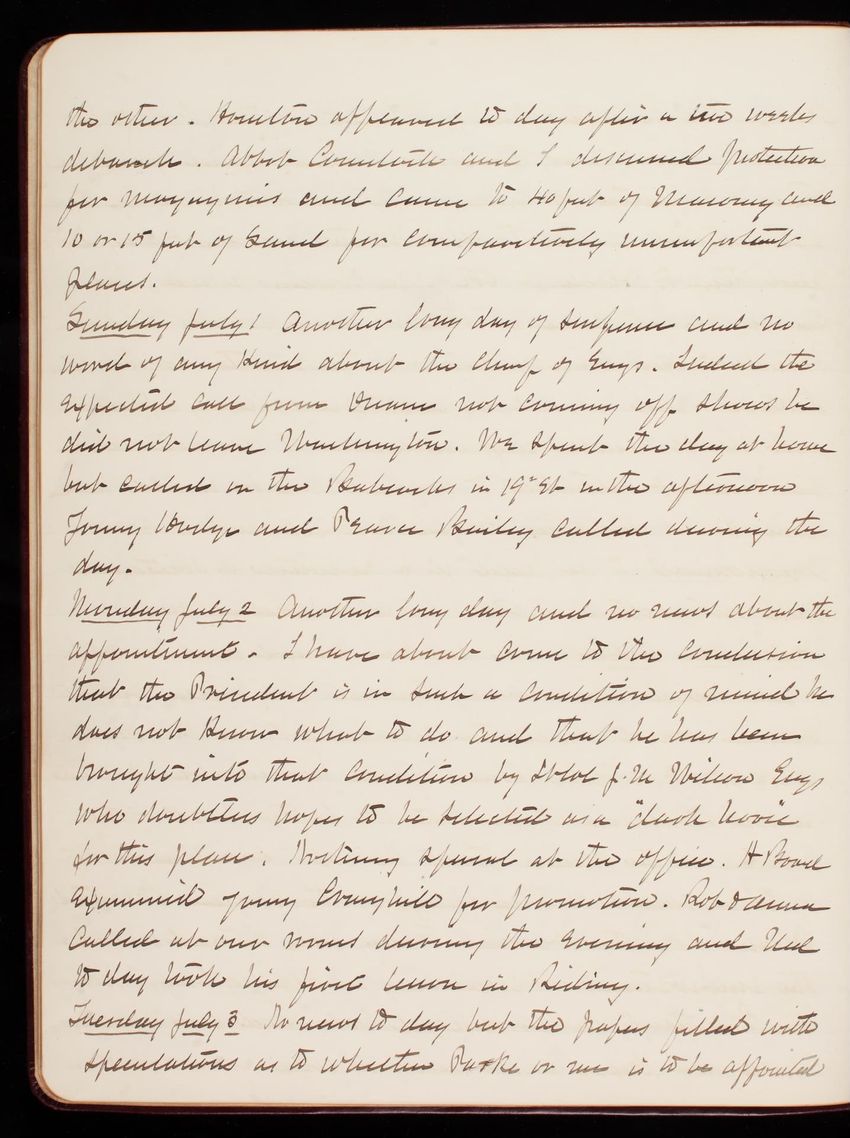 the other. Houston appeared to day after a two weeks
debauch. Abbot Comstock and I discussed protection
for magazines and came to 40 feet of Masonry and
10 or 15 feet of Sand for comparatively unimportant
places.
Sunday July 1 Another long day of suspense and no
word of any kind about the Chief of Engrs. Indeed the
expected call from Duane not coming off shows he
did not leave Washington. We spent the day at home
but called on the Babcocks in 19th St in the afternoon
Tommy Hodge and Bailey called during the
day.
Monday July 2 Another long day and no news about the
appointment. I have about come to the conclusion
that the President is in such a condition of mind he
does not know what to do and that he has been
brought into that condition by J. M. Wilson Engs
who doubtless hopes to be selected as a "dark horse"
for this place. Nothing special at the office. A Board
examined young Craighill for promotion. Rob & Anna
called at our rooms during the evening and Ned
to day took his first lesson in Riding.
Tuesday July 3 No news to day but the papers filled with
speculations as to whether Parke or me is to be appointed